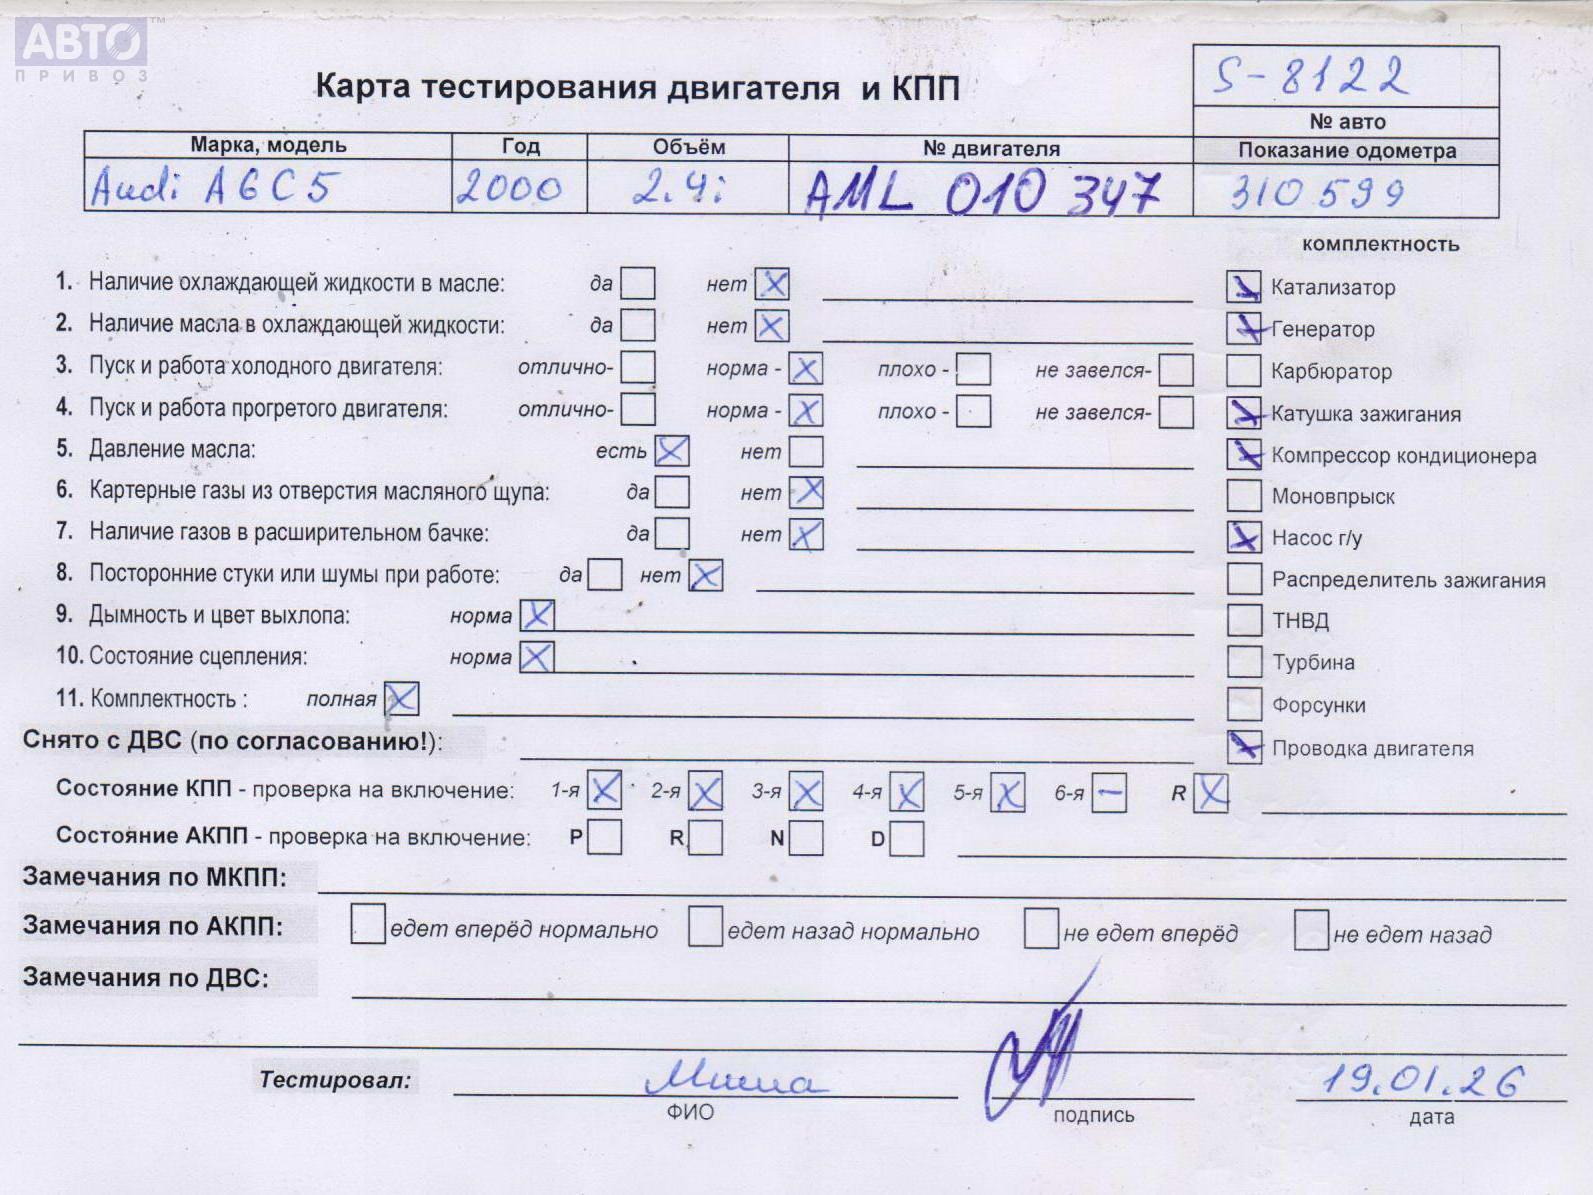 АВТО™
ПРИВОЗ
Карта тестирования двигателя и КПП
S-8122
№ авто
Марка, модель Год Объём № двигателя Показание одометра
Audi A6C5 2000 2.4i AML 010 347 310 599
комплектность
1. Наличие охлаждающей жидкости в масле: да нет X Катализатор
2. Наличие масла в охлаждающей жидкости: да нет X Генератор
3. Пуск и работа холодного двигателя: отлично- норма - X плохо - не завелся- Карбюратор
4. Пуск и работа прогретого двигателя: отлично- норма - X плохо - не завелся- Катушка зажигания
5. Давление масла: есть X нет Компрессор кондиционера
6. Картерные газы из отверстия масляного щупа: да нет X Моновпрыск
7. Наличие газов в расширительном бачке: да нет X Насос г/у
8. Посторонние стуки или шумы при работе: да нет X Распределитель зажигания
9. Дымность и цвет выхлопа: норма X ТНВД
10. Состояние сцепления: норма X Турбина
11. Комплектность : полная X Форсунки
Снято с ДВС (по согласованию!): Проводка двигателя
Состояние КПП - проверка на включение: 1-я X 2-я X 3-я X 4-я X 5-я X 6-я – R X
Состояние АКПП - проверка на включение: P R N D
Замечания по МКПП:
Замечания по АКПП: едет вперёд нормально едет назад нормально не едет вперёд не едет назад
Замечания по ДВС:
Тестировал: Миша 19.01.26
ФИО подпись дата